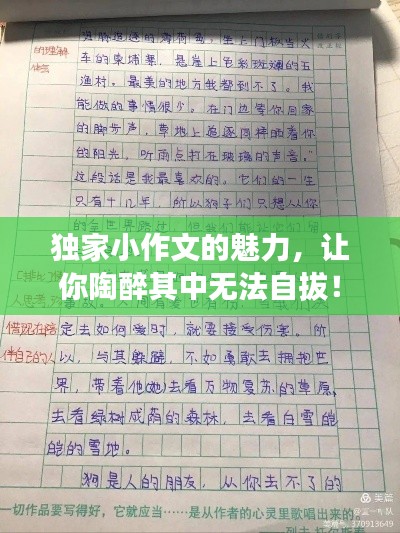 车的柬埔寨，悬崖上色彩斑斓的五
渔村。最美的地方我都到不了。我
能做的事情很少。在门边等你回家
的脚步声，草地上追逐同样晒着你
的阳光。听雨点打在玻璃的声音。"
这段话是我最喜欢的。它们的一生
只有十几年，所以狗子们只想从你
独家小作文的魅力，让
你陶醉其中无法自拔！
定去如何爱时，就要接受伤害。所
以，与其躲避，不如勇敢去拥抱世
界，带着他(她)去看万物复苏的草原，
去看绿树成荫的森林，去看白雪皑
皑的雪地。
狗是人的朋友，从你去不了的
一切作品要写得好，它就应当……是从作者的心灵里歌唱出来的。
美篇
370913649